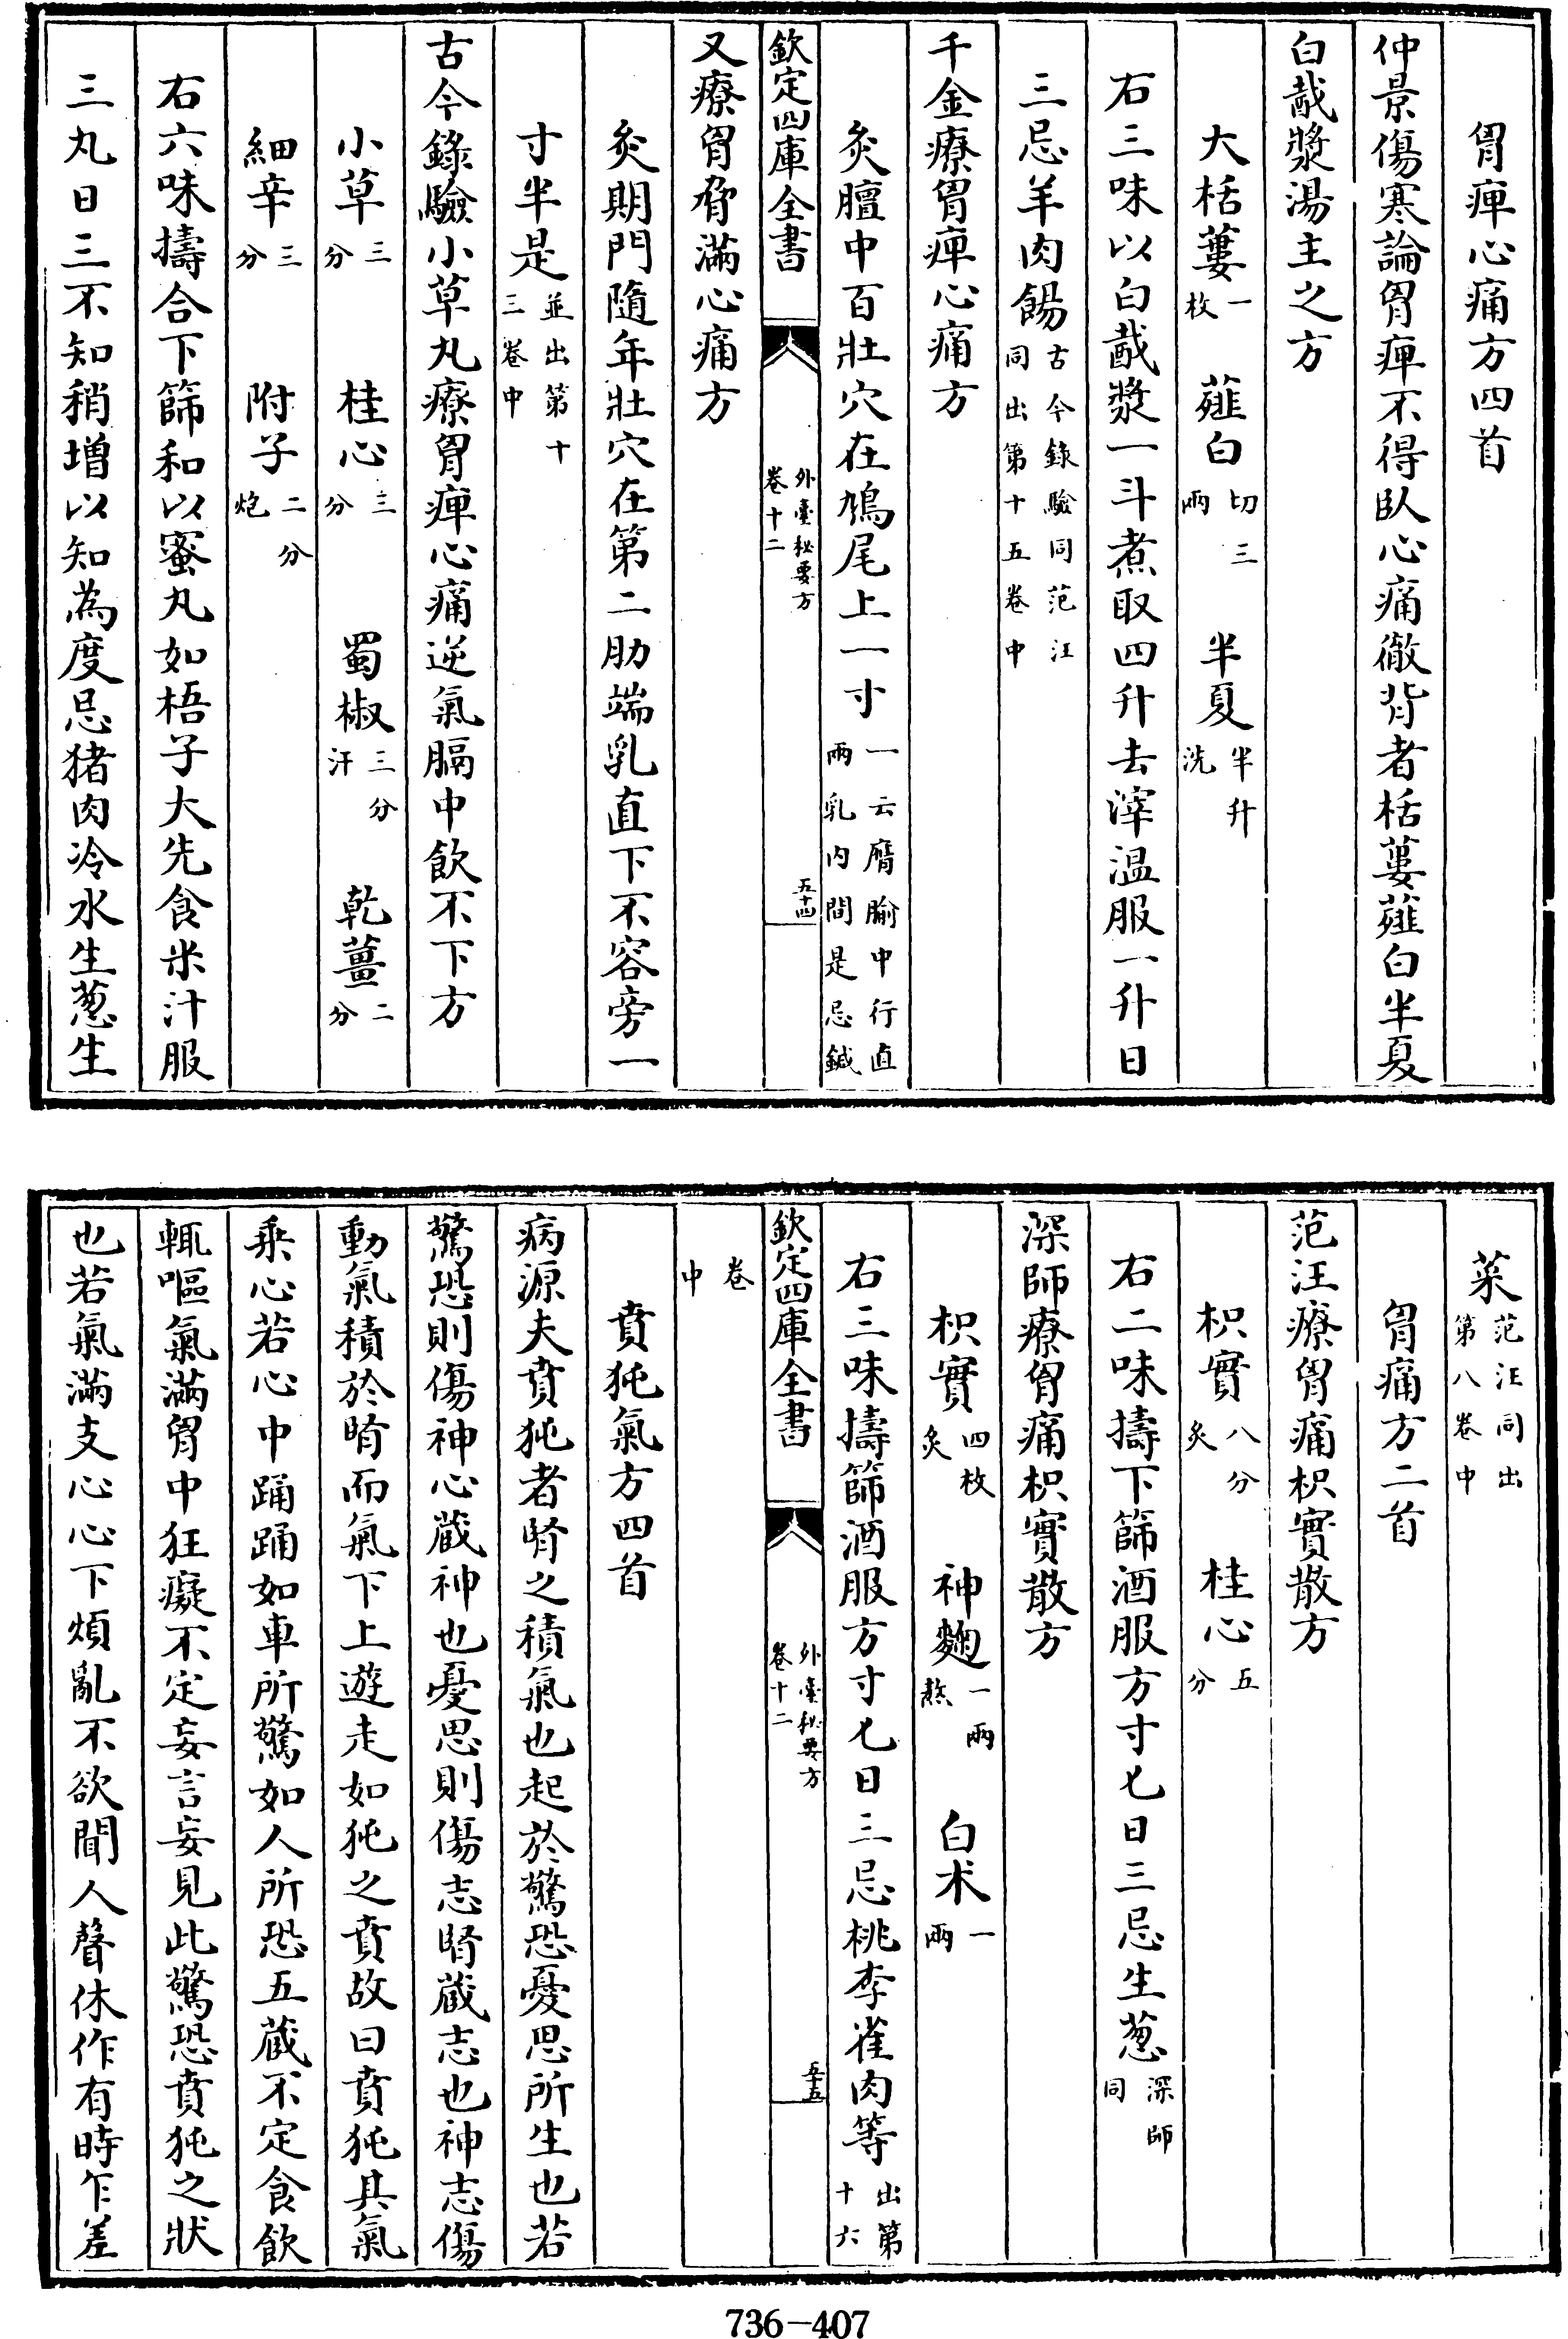 胷痺心痛方四首
仲景傷寒論胷痺不得臥心痛徹背者栝蔞薤白半夏
白酨漿湯主之方
大栝蔞一枚　薤白切三兩　半夏半升洗
右三味以白酨漿一斗煮取四升去滓温服一升日
三忌羊肉餳古今錄驗同范汪同出第十五卷中
千金療胷痺心痛方
灸膻中百壯穴在鳩尾上一寸一云膺腧中行直兩乳内間是忌鍼
欽定四庫全書　外臺秘要方卷十二　五十四
又療胷脅滿心痛方
灸期門隨年壯穴在第二肋端乳直下不容旁一
寸半是並出第十三卷中
古今錄驗小草丸療胷痺心痛逆氣膈中飲不下方
小草三分　桂心三分　蜀椒三分汗　乾薑二分
細辛三分　附子二分炮
右六味擣合下篩和以蜜丸如梧子大先食米汁服
三丸日三不知稍增以知為度忌猪肉冷水生葱生
菜范汪同出第八卷中
胷痛方二首
范汪療胷痛枳實散方
枳實八分炙　桂心五分
右二味擣下篩酒服方寸匕日三忌生葱深師同
深師療胷痛枳實散方
枳實四枚炙　神麴一兩熬　白朮一兩
右三味擣篩酒服方寸匕日三忌桃李雀肉等出第十六
欽定四庫全書　外臺秘要方卷十二　五十五
卷中
賁㹠氣方四首
病源夫賁㹠者腎之積氣也起於驚恐憂思所生也若
驚恐則傷神心藏神也憂思則傷志腎藏志也神志傷
動氣積於腎而氣下上遊走如㹠之賁故曰賁㹠其氣
乘心若心中踊踊如車所驚如人所恐五藏不定食飲
輒嘔氣滿胷中狂癡不定妄言妄見此驚恐賁㹠之狀
也若氣滿支心心下煩亂不欲聞人聲休作有時乍差
736-407